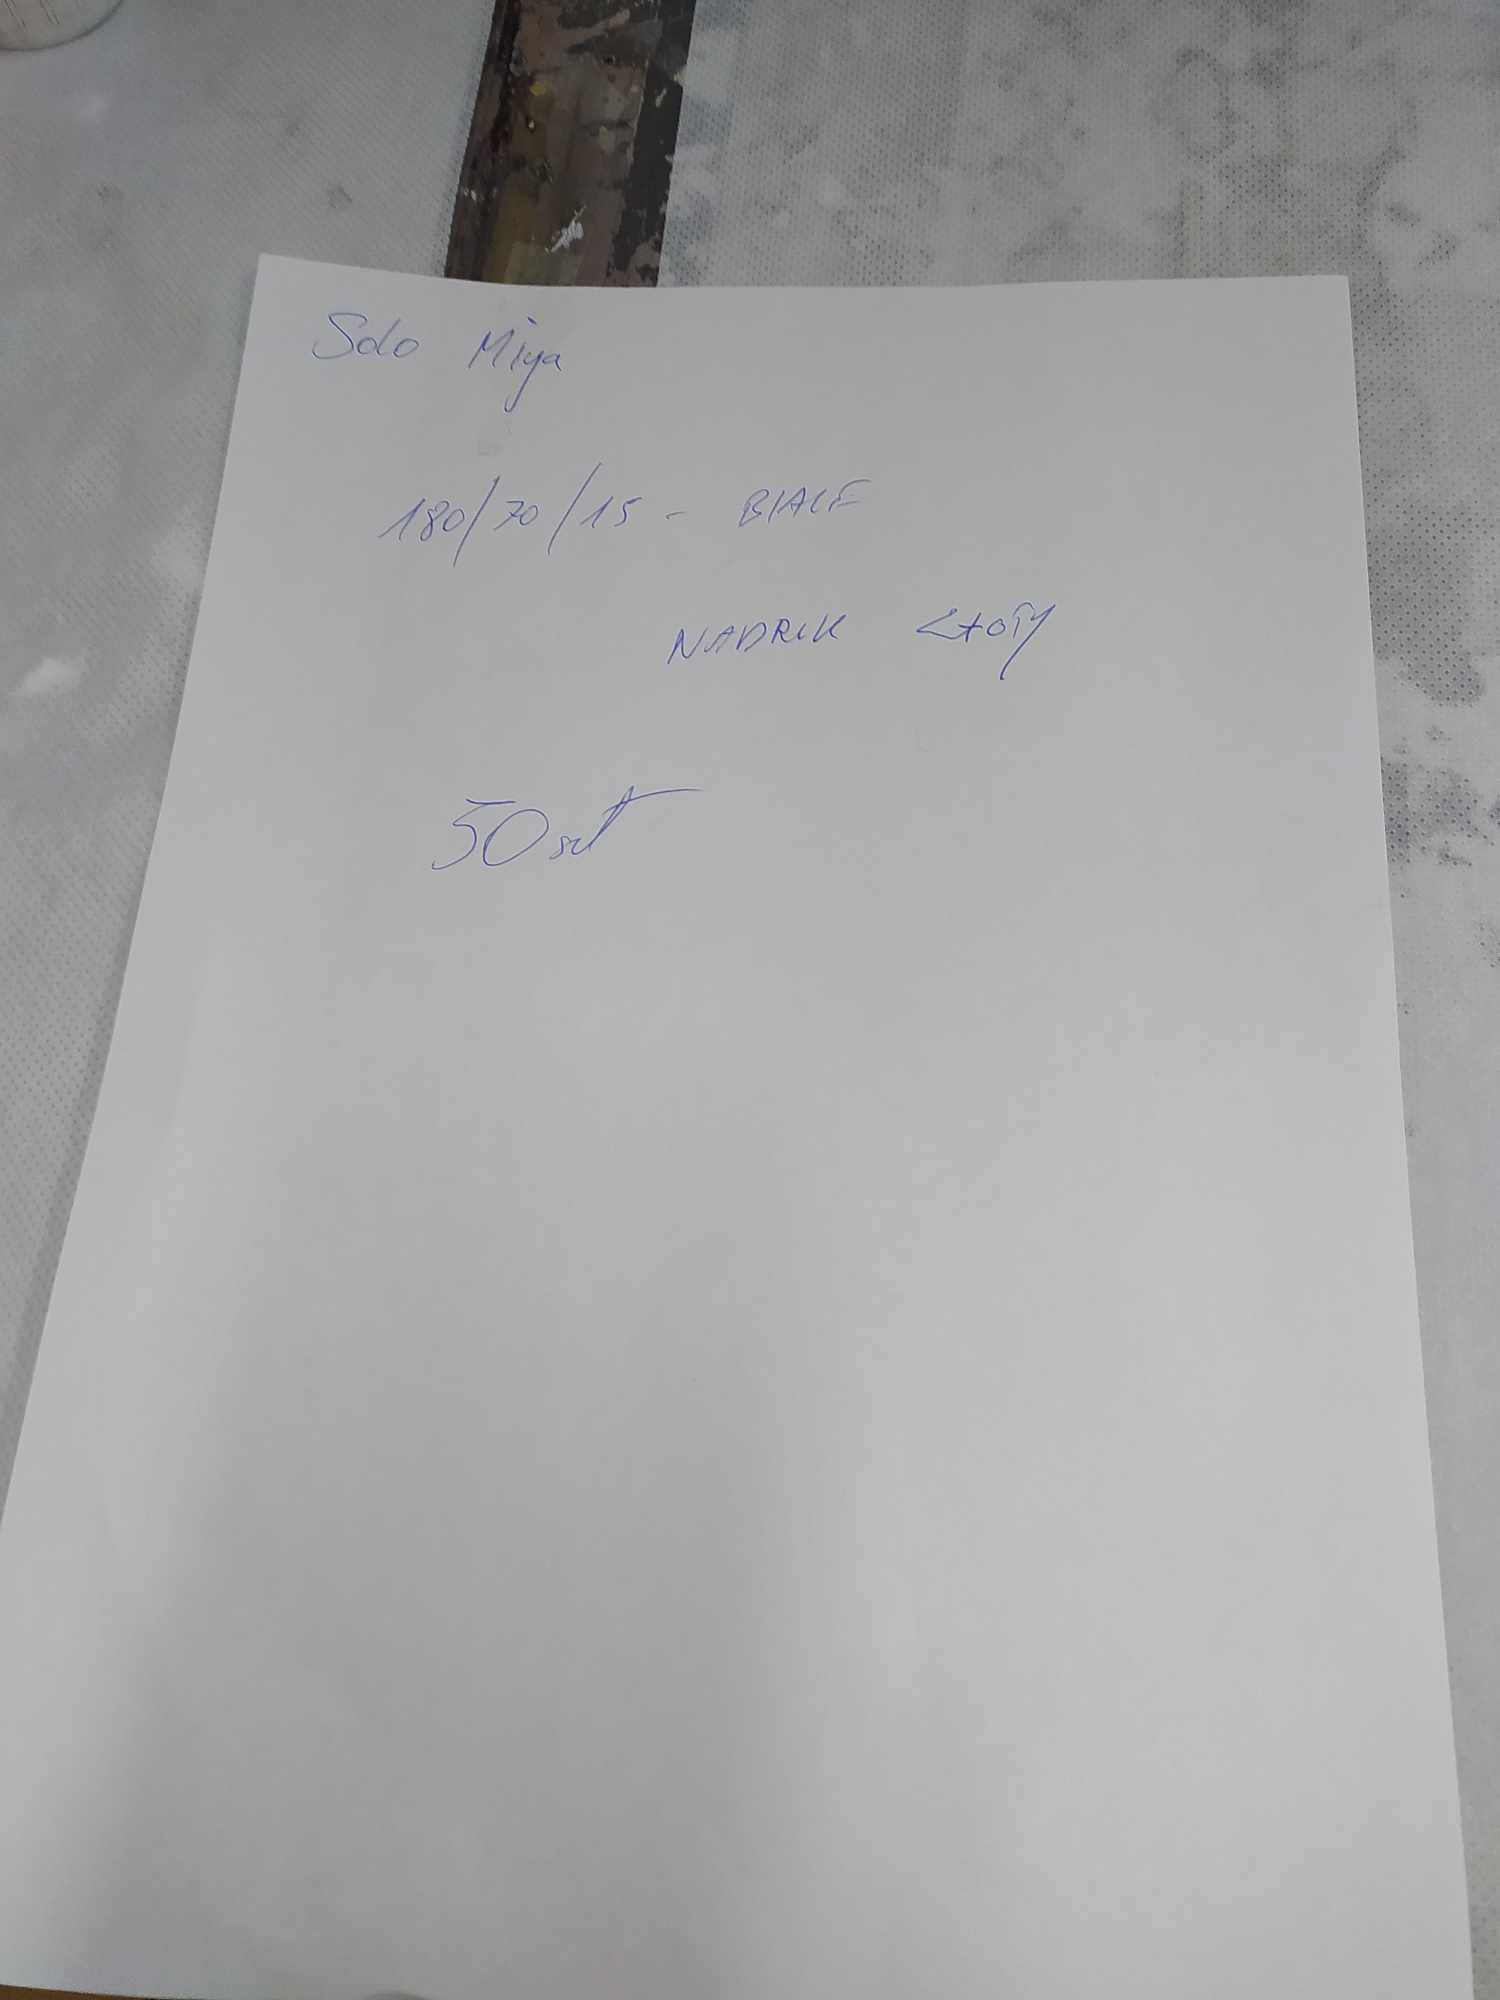 Solo Miya
180/70/15 - BIAŁE
NADRUK ZŁOTY
50 szt